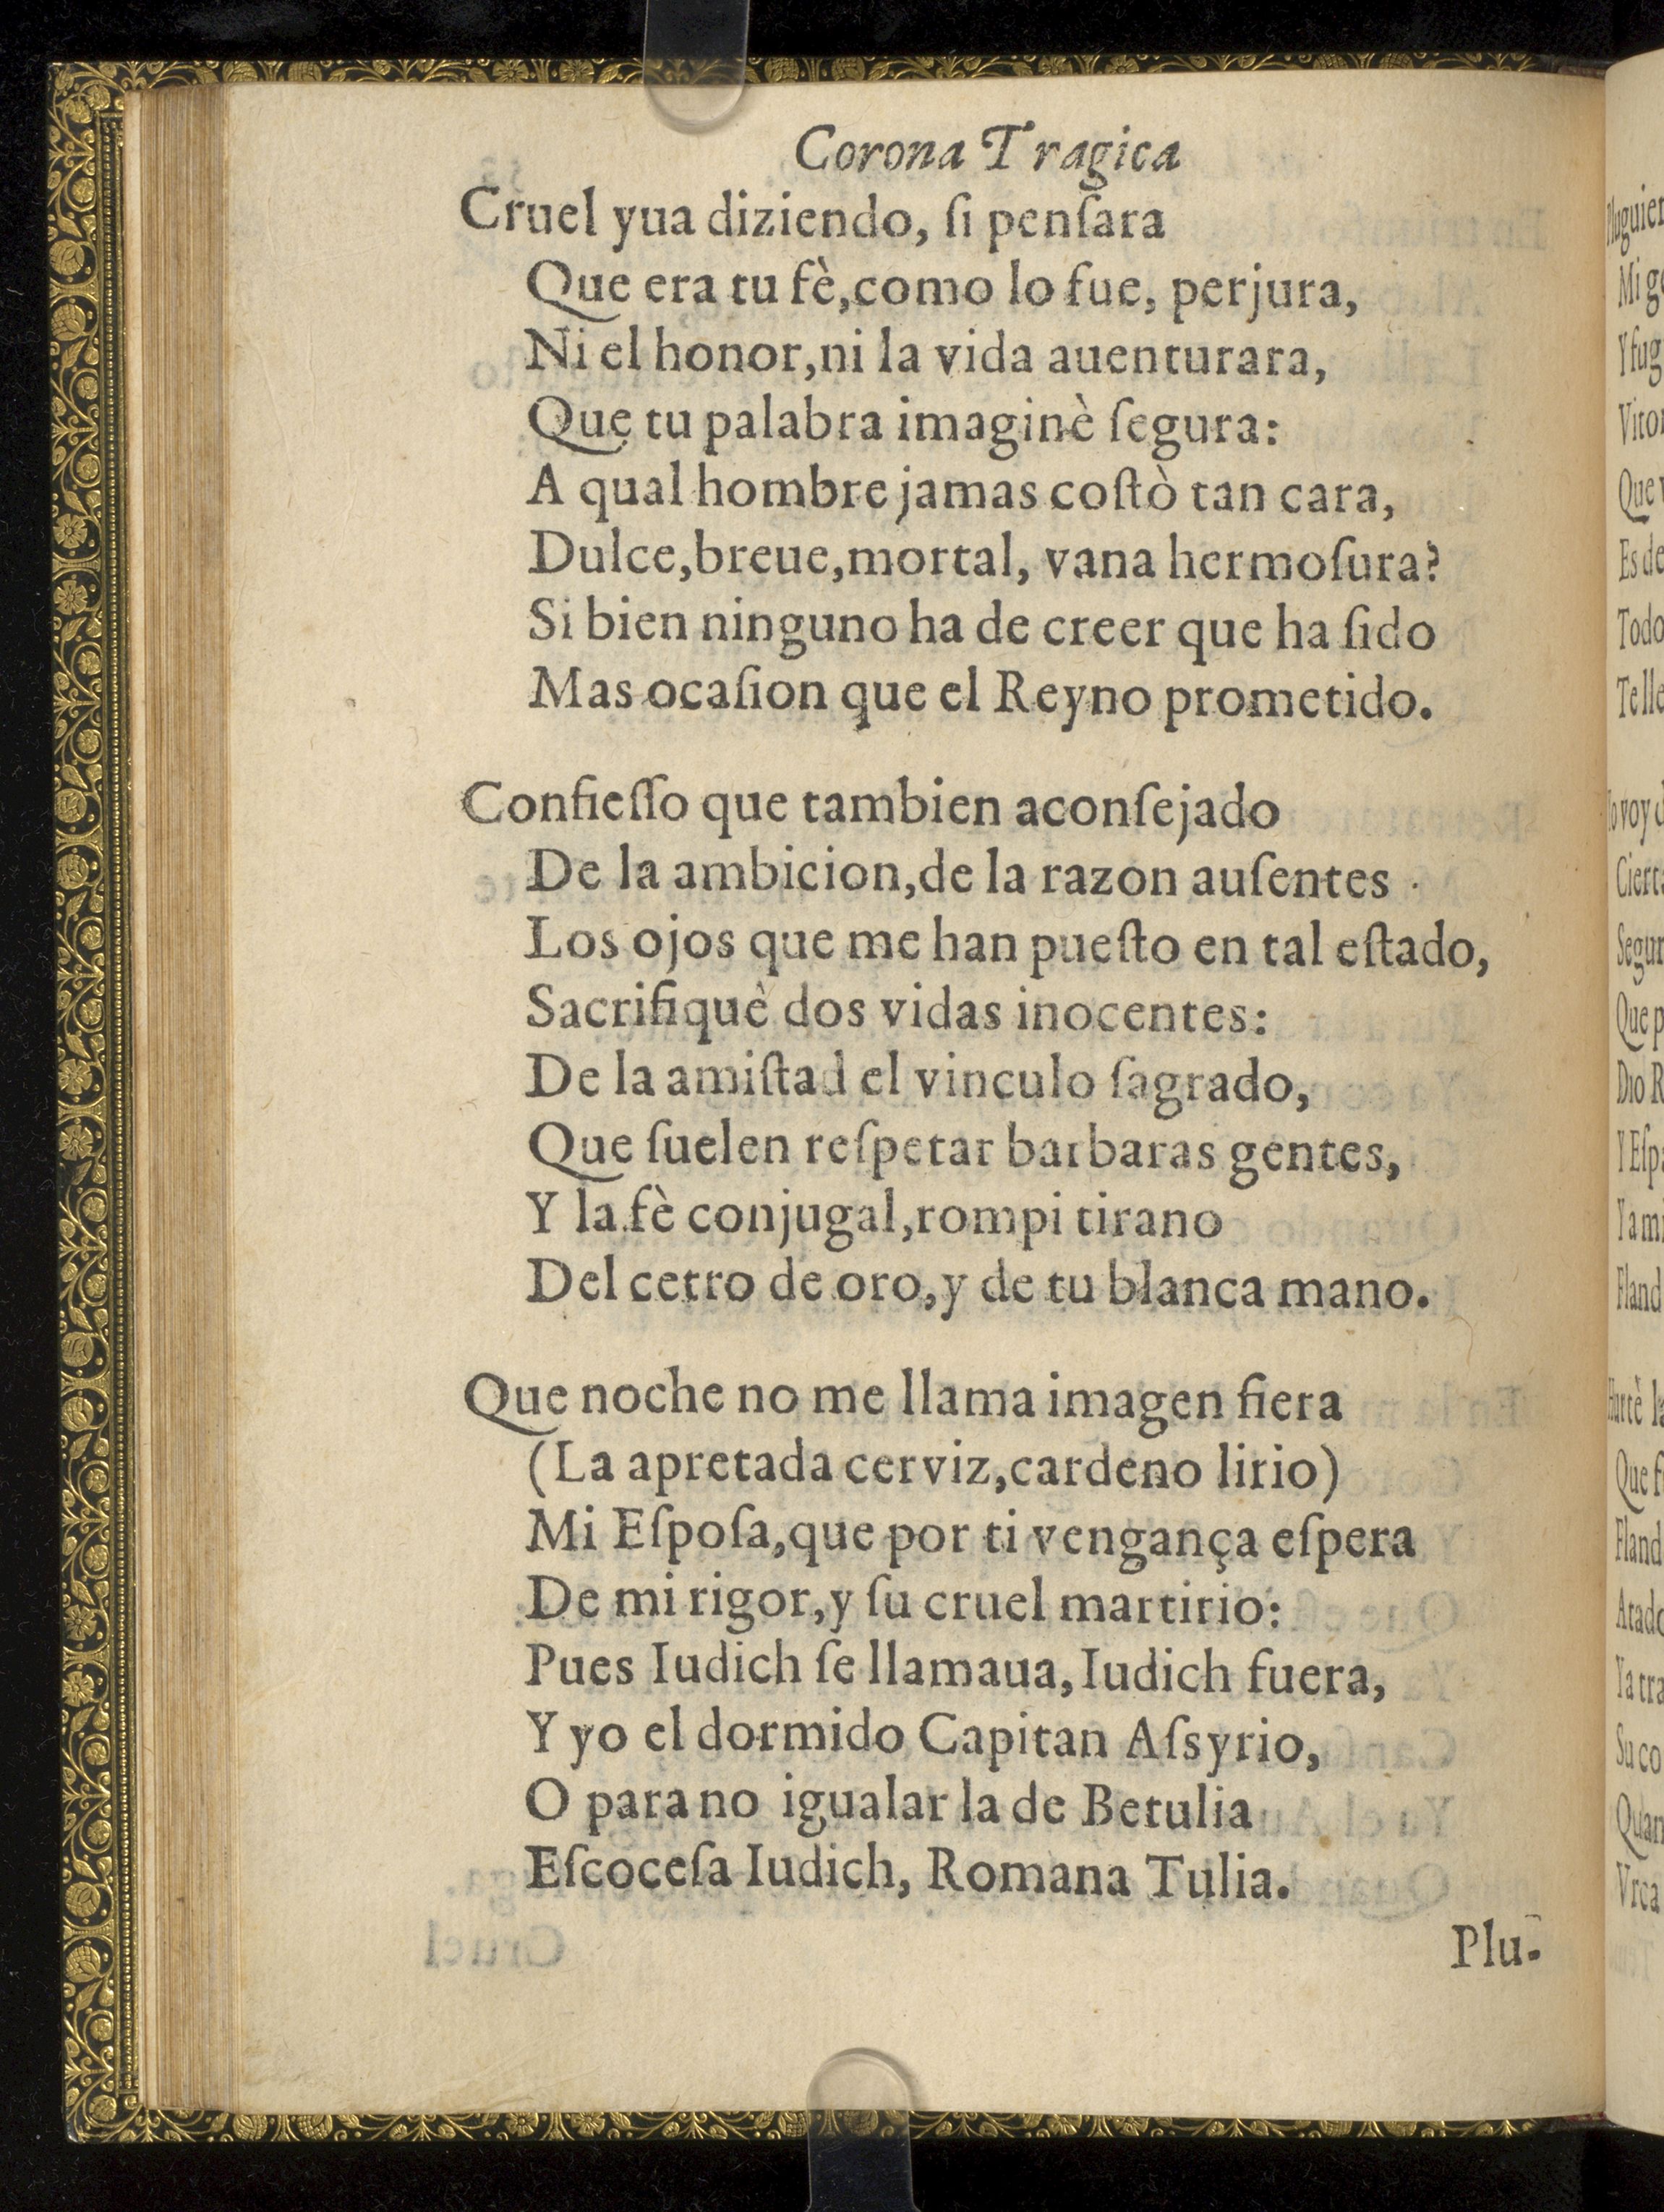 Corona Tragica
Cruel yua diziendo, ſi penſara
Que era tu fè,como lo fue, perjura,
Ni el honor,ni la vida auenturara,
Que tu palabra imaginè ſegura:
A qual hombre jamas coſtò tan cara,
Dulce,breue,mortal, vana hermoſura?
Si bien ninguno ha de creer que ha ſido
Mas ocaſion que el Reyno prometido.
Confieſſo que tambien aconſejado
De la ambicion,de la razon auſentes
Los ojos que me han pueſto en tal eſtado,
Sacrifiquè dos vidas inocentes:
De la amiſtad el vinculo ſagrado,
Que ſuelen reſpetar barbaras gentes,
Y la fè conjugal,rompi tirano
Del cetro de oro,y de tu blanca mano.
Que noche no me llama imagen fiera
(La apretada cerviz,cardeno lirio)
Mi Eſpoſa,que por ti vengança eſpera
De mi rigor,y ſu cruel martirio:
Pues Iudich ſe llamaua,Iudich fuera,
Y yo el dormido Capitan Aſsyrio,
O para no igualar la de Betulia
Eſcoceſa Iudich, Romana Tulia.
Plu-